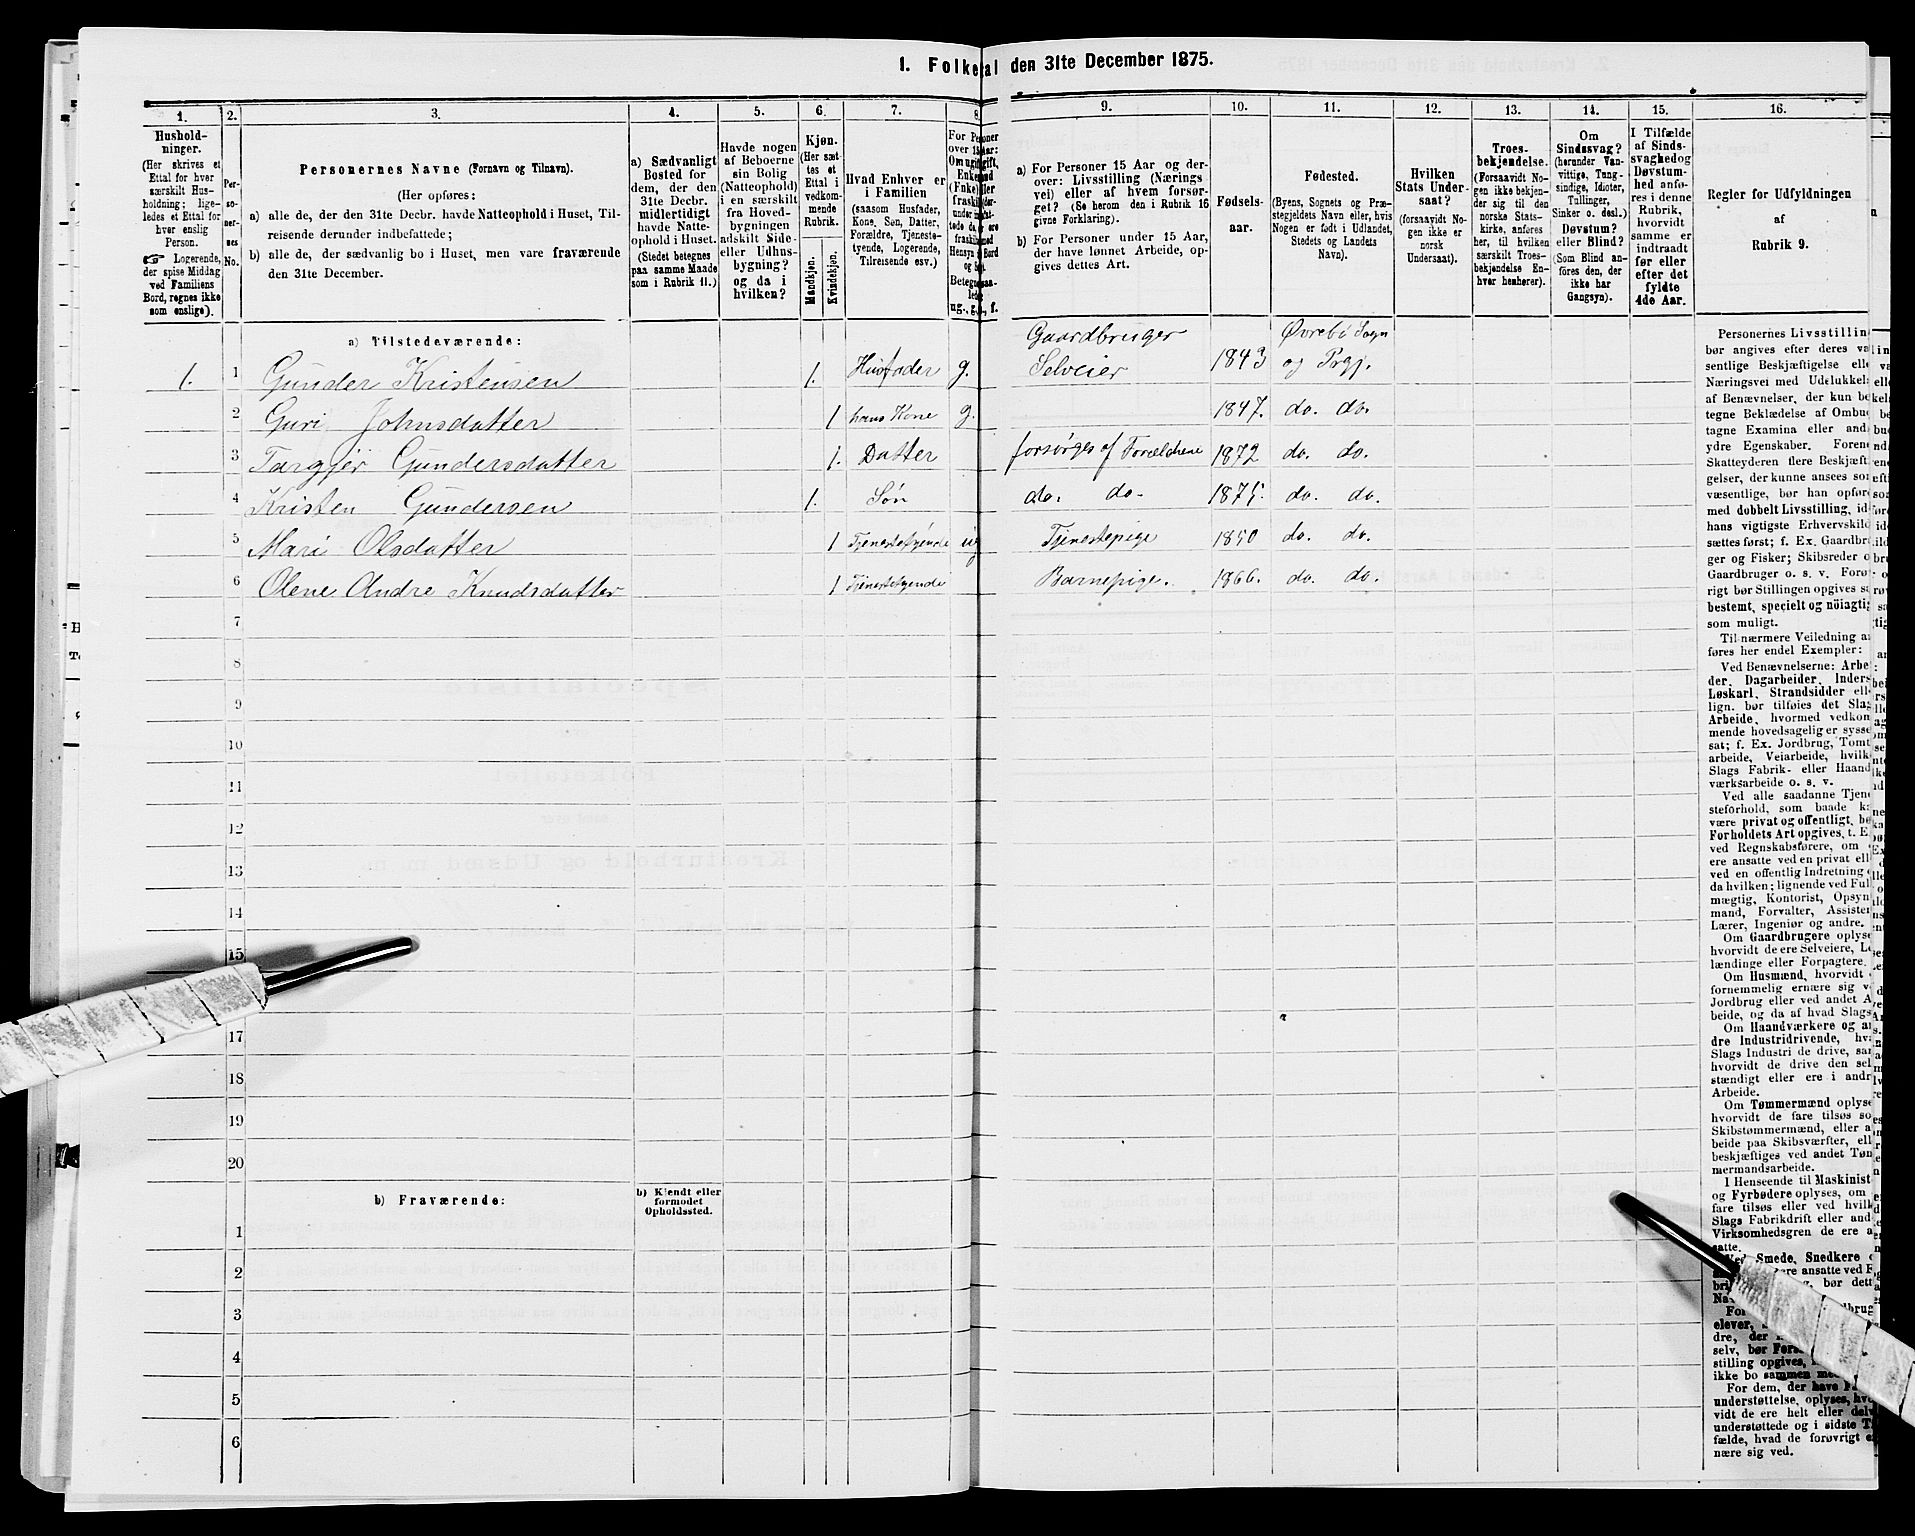 1. Folketal den 31te December 1875.
1.
Hushold-
ninger.
(Her skrives et
Ettal for hver
særskilt Hus-
holdning; lige-
ledes et Ettal for
hver enslig
Person.
☞ Logerende,
der spise Middag
ved Familiens
Bord, regnes ikke
som enslige).
2.
Per-
so-
ner-
nes
No.
3.
Personernes Navne (Fornavn og Tilnavn).
(Her opføres:
a) alle de, der den 31te Decbr. havde Natteophold i Huset, Til-
reisende derunder indbefattede;
b) alle de, der sædvanlig bo i Huset, men vare fraværende
den 31te December.
4.
a) Sædvanligt
Bosted for
dem, der den
31te Decbr.
midlertidigt
havde Natte-
ophold i Huset.
(Stedet betegnes
paa samme Maade
som i Rubrik 11.)
5.
Havde nogen
af Beboerne
sin Bolig
(Natteophold)
i en særskilt
fra Hoved-
bygningen
adskilt Side-
eller Udhus-
bygning?
og da i
hvilken?
6.
Kjøn.
(Her sæt-
tes et
Ettal i
vedkom-
mende
Rubrik.
Mandkjøn.
Kvindekjøn.
7.
Hvad Enhver er
i Familien
(saasom Husfader,
Kone, Søn, Datter,
Forældre, Tjeneste-
tyende, Logerende,
Tilreisende esv.)
8.
For Personer
over 15 Aar:
Om ugift, gift,
9.
a) For Personer 15 Aar og der-
over: Livsstilling (Nærings-
vei) eller af hvem forsør-
get? (Se herom den i Rubrik 16
givne Forklaring).
b) For Personer under 15 Aar,
der have lønnet Arbeide, op-
gives dettes Art.
10.
Fødsels-
aar.
11.
Fødested.
(Byens, Sognets og Præ-
stegjeldets Navn eller, hvis
Nogen er født i Udlandet,
Stedets og Landets
Navn).
12.
Hvilken
Stats Under-
saat?
(forsaavidt No-
gen ikke er
norsk
Undersaat).
13.
Troes-
bekjendelse.
(Forsaavidt No-
gen ikke bekjen-
der sig til den
norske Stats-
kirke, anføres
her, til hvilken
særskilt Troes-
bekjendelse En-
hver henhører).
14.
Om
Sindssvag?
(herunder Van-
vittige, Tung-
sindige, Idioter,
Tullinger,
Sinker o. desl.)
Døvstum?
eller Blind?
(Som Blind an-
føres den, der
ikke har
Gangsyn).
15.
I Tilfælde
af Sinds-
svaghed og
Døvstum-
hed anfø-
res i denne
Rubrik,
hvorvidt
samme er
indtraadt
før eller
efter det
fyldte
4de Aar.
16.
Regler for Udfyldningen
af
Rubrik 9.
a) Tilstedeværende:
1. 1 Gunder Kristensen 1. Husfader g. Gaardbruger Selveier 1843 Øvrebø Sogn og Prgj.
2 Guri Johnsdatter 1 hans Kone g. 1847. do. do.
3 Targjer Gundersdatter 1. Datter forsørges af Forældrene 1872 do. do.
4 Kristen Gundersen 1. Søn do. do. 1875. do. do.
5 Mari Olsdatter 1 Tjenestetyende ug Tjenestepige 1850 do. do.
6 Olene Andre Knudsdatter 1 Tjenestetyende Barnepige. 1866. do. do.
7
8
9
10
11
12
13
14
15
17
18
19
20
b) Fraværende:
b) Kjendt eller
formodet
Opholdssted.
1
2
3
4
5
6
Personernes Livsstilling
bør angives efter deres
sentlige Beskjæftigelse
Næringsvei med
af Benævnelser, der kun
tegne Beklædelse af
tagne Examina eller
ydre Egenskaber.
Skatteyderen flere
gelser, der kunne ansees
væsentlige, bør han
med dobbelt Livsstilling,
hans vigtigste
sættes først; f. Ex.
ger og Fisker; Skibsreder
Gaardbruger o. s. v.
rigt bør Stillingen opgives
bestemt, specielt og nöiagtig
som muligt.
Til nærmere Veiledning
føres her endel Exempler:
Ved Benævnelserne:
der, Dagarbeider,
Løskarl, Strandsidder
lign. bør tilføies det
Arbeide, hvormed
mende hovedsagelig er
sat; f. Ex. Jordbrug,
arbeide, Veiarbeide,
Slags Fabrik- eller
værksarbeide o. s. v.
Ved alle saadanne
steforhold, som baade
være privat og offentligt,
Forholdets Art opgives, t. E
ved Regnskabsførere, om
ere ansatte ved en privat
ved en offentlig Indretning
da hvilken; lignende ved
mægtig, Kontorist,
mand, Forvalter,
Lærer, Ingeniør og andre.
Om Gaardbrugere
hvorvidt de ere Selveiere,
lændinge eller Forpagtere.
Om Husmænd, hvorvidt
fornemmelig ernære sig
Jordbrug eller ved andet
beide, og da af hvad Slags
Om Haandværkere og
dre Industridrivende,
Slags Industri de drive,
hvorvidt de drive den
stændigt eller ere i
Arbeide.
Om Tømmermænd
hvorvidt de fare tilsøs
Skibstømmermænd, eller
beide paa Skibsværfter,
beskjæftiges ved andet
mermandsarbeide.
I Henseende til
og Fyrbødere oplyses, om
fare tilsøs eller ved
Slags Fabrikdrift eller
Virksomhedsgren de ere
satte.
Ved Smede, Snedkere
ansatte ved
bør
elever,
dre, der
selv, bør
stilling opgives,
ikke bo sammen med
For dem, der have
understøttelse, oplyses,
vidt de ere helt eller
understøttede og i sidste
fælde, hvad de forøvrigt
nære sig ved.